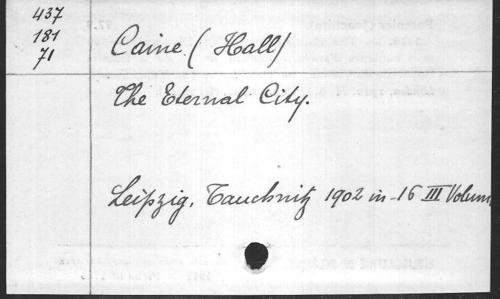 437
181
71
Caine (Hall)
The Eternal City.
Leipzig, Tauchnitz 1902 in-16 III Volum